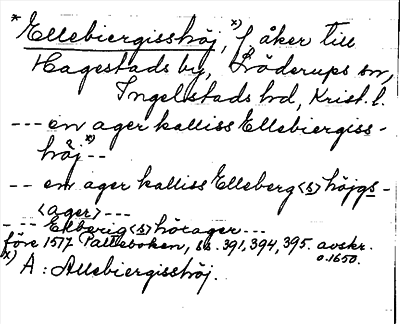 * Ellebiergisshöj, *) f. åker till
Hagestads by, Löderups sn,
Ingelstads hd, Krist. l.
--- en ager kalliss Ellebiergiss-
höj *) --
-- en ager kalliss Elleberg<s>höjgs-
<ager> ---
--- Elberig<s>hörager ---
före 1517 Palteboken, ss. 391, 394, 395. avskr.
o. 1650.
x) A: Allebiergisshöj.